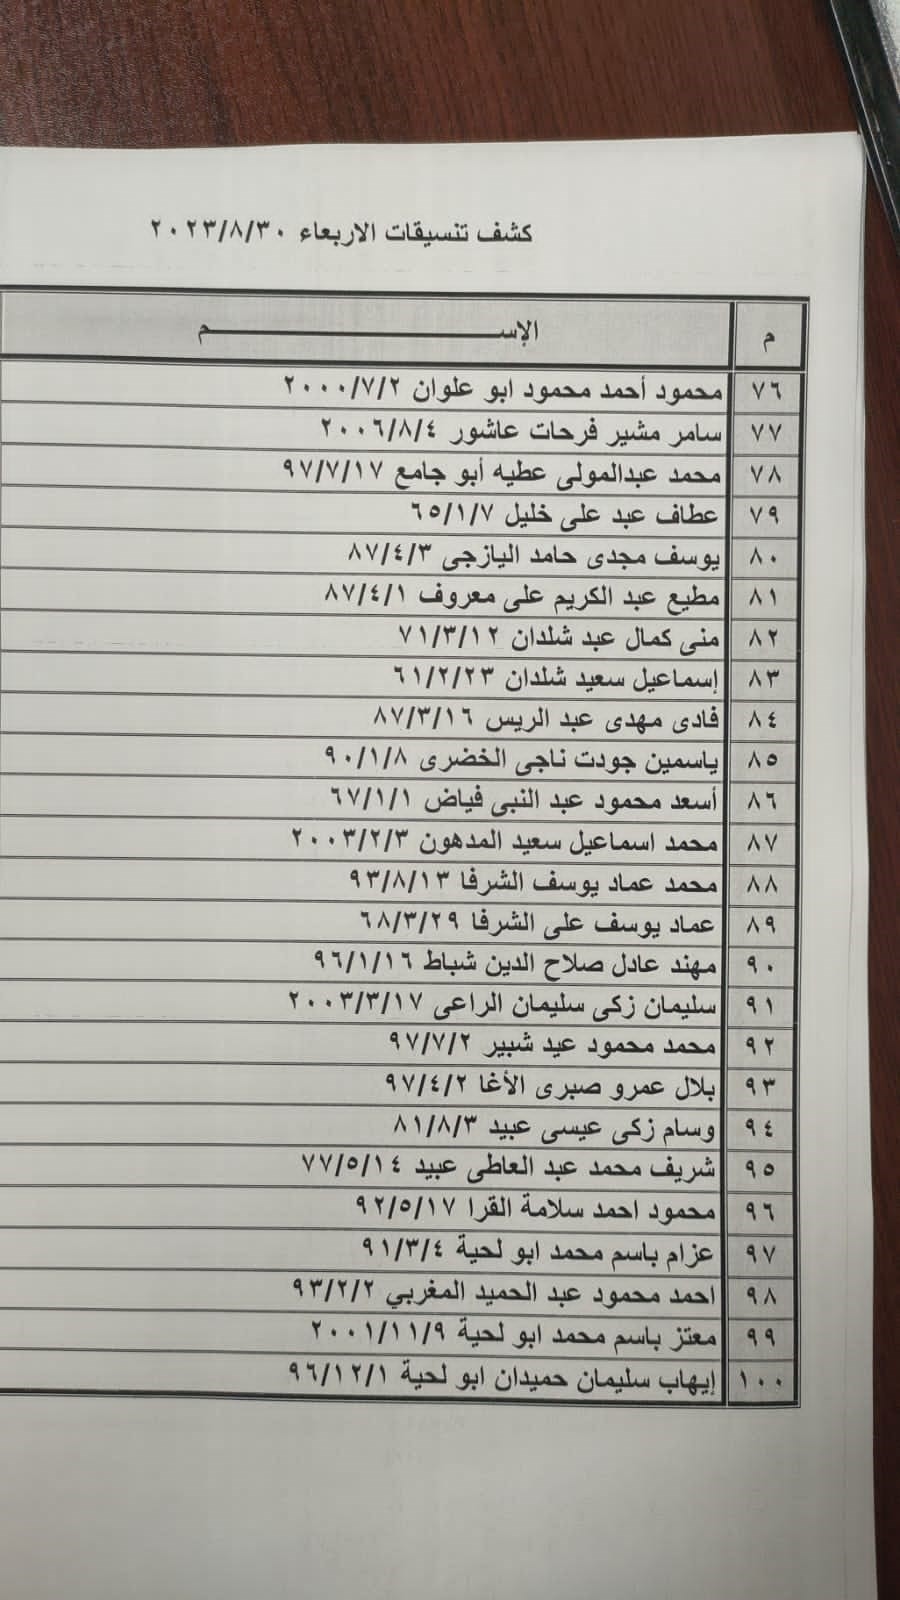 كشف تنسيقات الاربعاء ٢٠٢٣/٨/٣٠
م الإســـــــــــــــــــــــــم
٧٦ محمود أحمد محمود ابو علوان ٢٠٠٠/٧/٢
٧٧ سامر مشير فرحات عاشور ٢٠٠٦/٨/٤
٧٨ محمد عبدالمولى عطيه أبو جامع ٩٧/٧/١٧
٧٩ عطاف عبد على خليل ٦٥/١/٧
٨٠ يوسف مجدى حامد اليازجى ٨٧/٤/٣
٨١ مطيع عبد الكريم على معروف ٨٧/٤/١
٨٢ منى كمال عبد شلدان ٧١/٣/١٢
٨٣ إسماعيل سعيد شلدان ٦١/٢/٢٣
٨٤ فادى مهدى عبد الريس ٨٧/٣/١٦
٨٥ ياسمين جودت ناجى الخضرى ٩٠/١/٨
٨٦ أسعد محمود عبد النبى فياض ٦٧/١/١
٨٧ محمد اسماعيل سعيد المدهون ٢٠٠٣/٢/٣
٨٨ محمد عماد يوسف الشرفا ٩٣/٨/١٣
٨٩ عماد يوسف على الشرفا ٦٨/٣/٢٩
٩٠ مهند عادل صلاح الدين شباط ٩٦/١/١٦
٩١ سليمان زكى سليمان الراعى ٢٠٠٣/٣/١٧
٩٢ محمد محمود عيد شبير ٩٧/٧/٢
٩٣ بلال عمرو صبرى الأغا ٩٧/٤/٢
٩٤ وسام زكى عيسى عبيد ٨١/٨/٣
٩٥ شريف محمد عبد العاطى عبيد ٧٧/٥/١٤
٩٦ محمود احمد سلامة القرا ٩٢/٥/١٧
٩٧ عزام باسم محمد ابو لحية ٩١/٣/٤
٩٨ احمد محمود عبد الحميد المغربي ٩٣/٢/٢
٩٩ معتز باسم محمد ابو لحية ٢٠٠١/١١/٩
١٠٠ إيهاب سليمان حميدان ابو لحية ٩٦/١٢/١